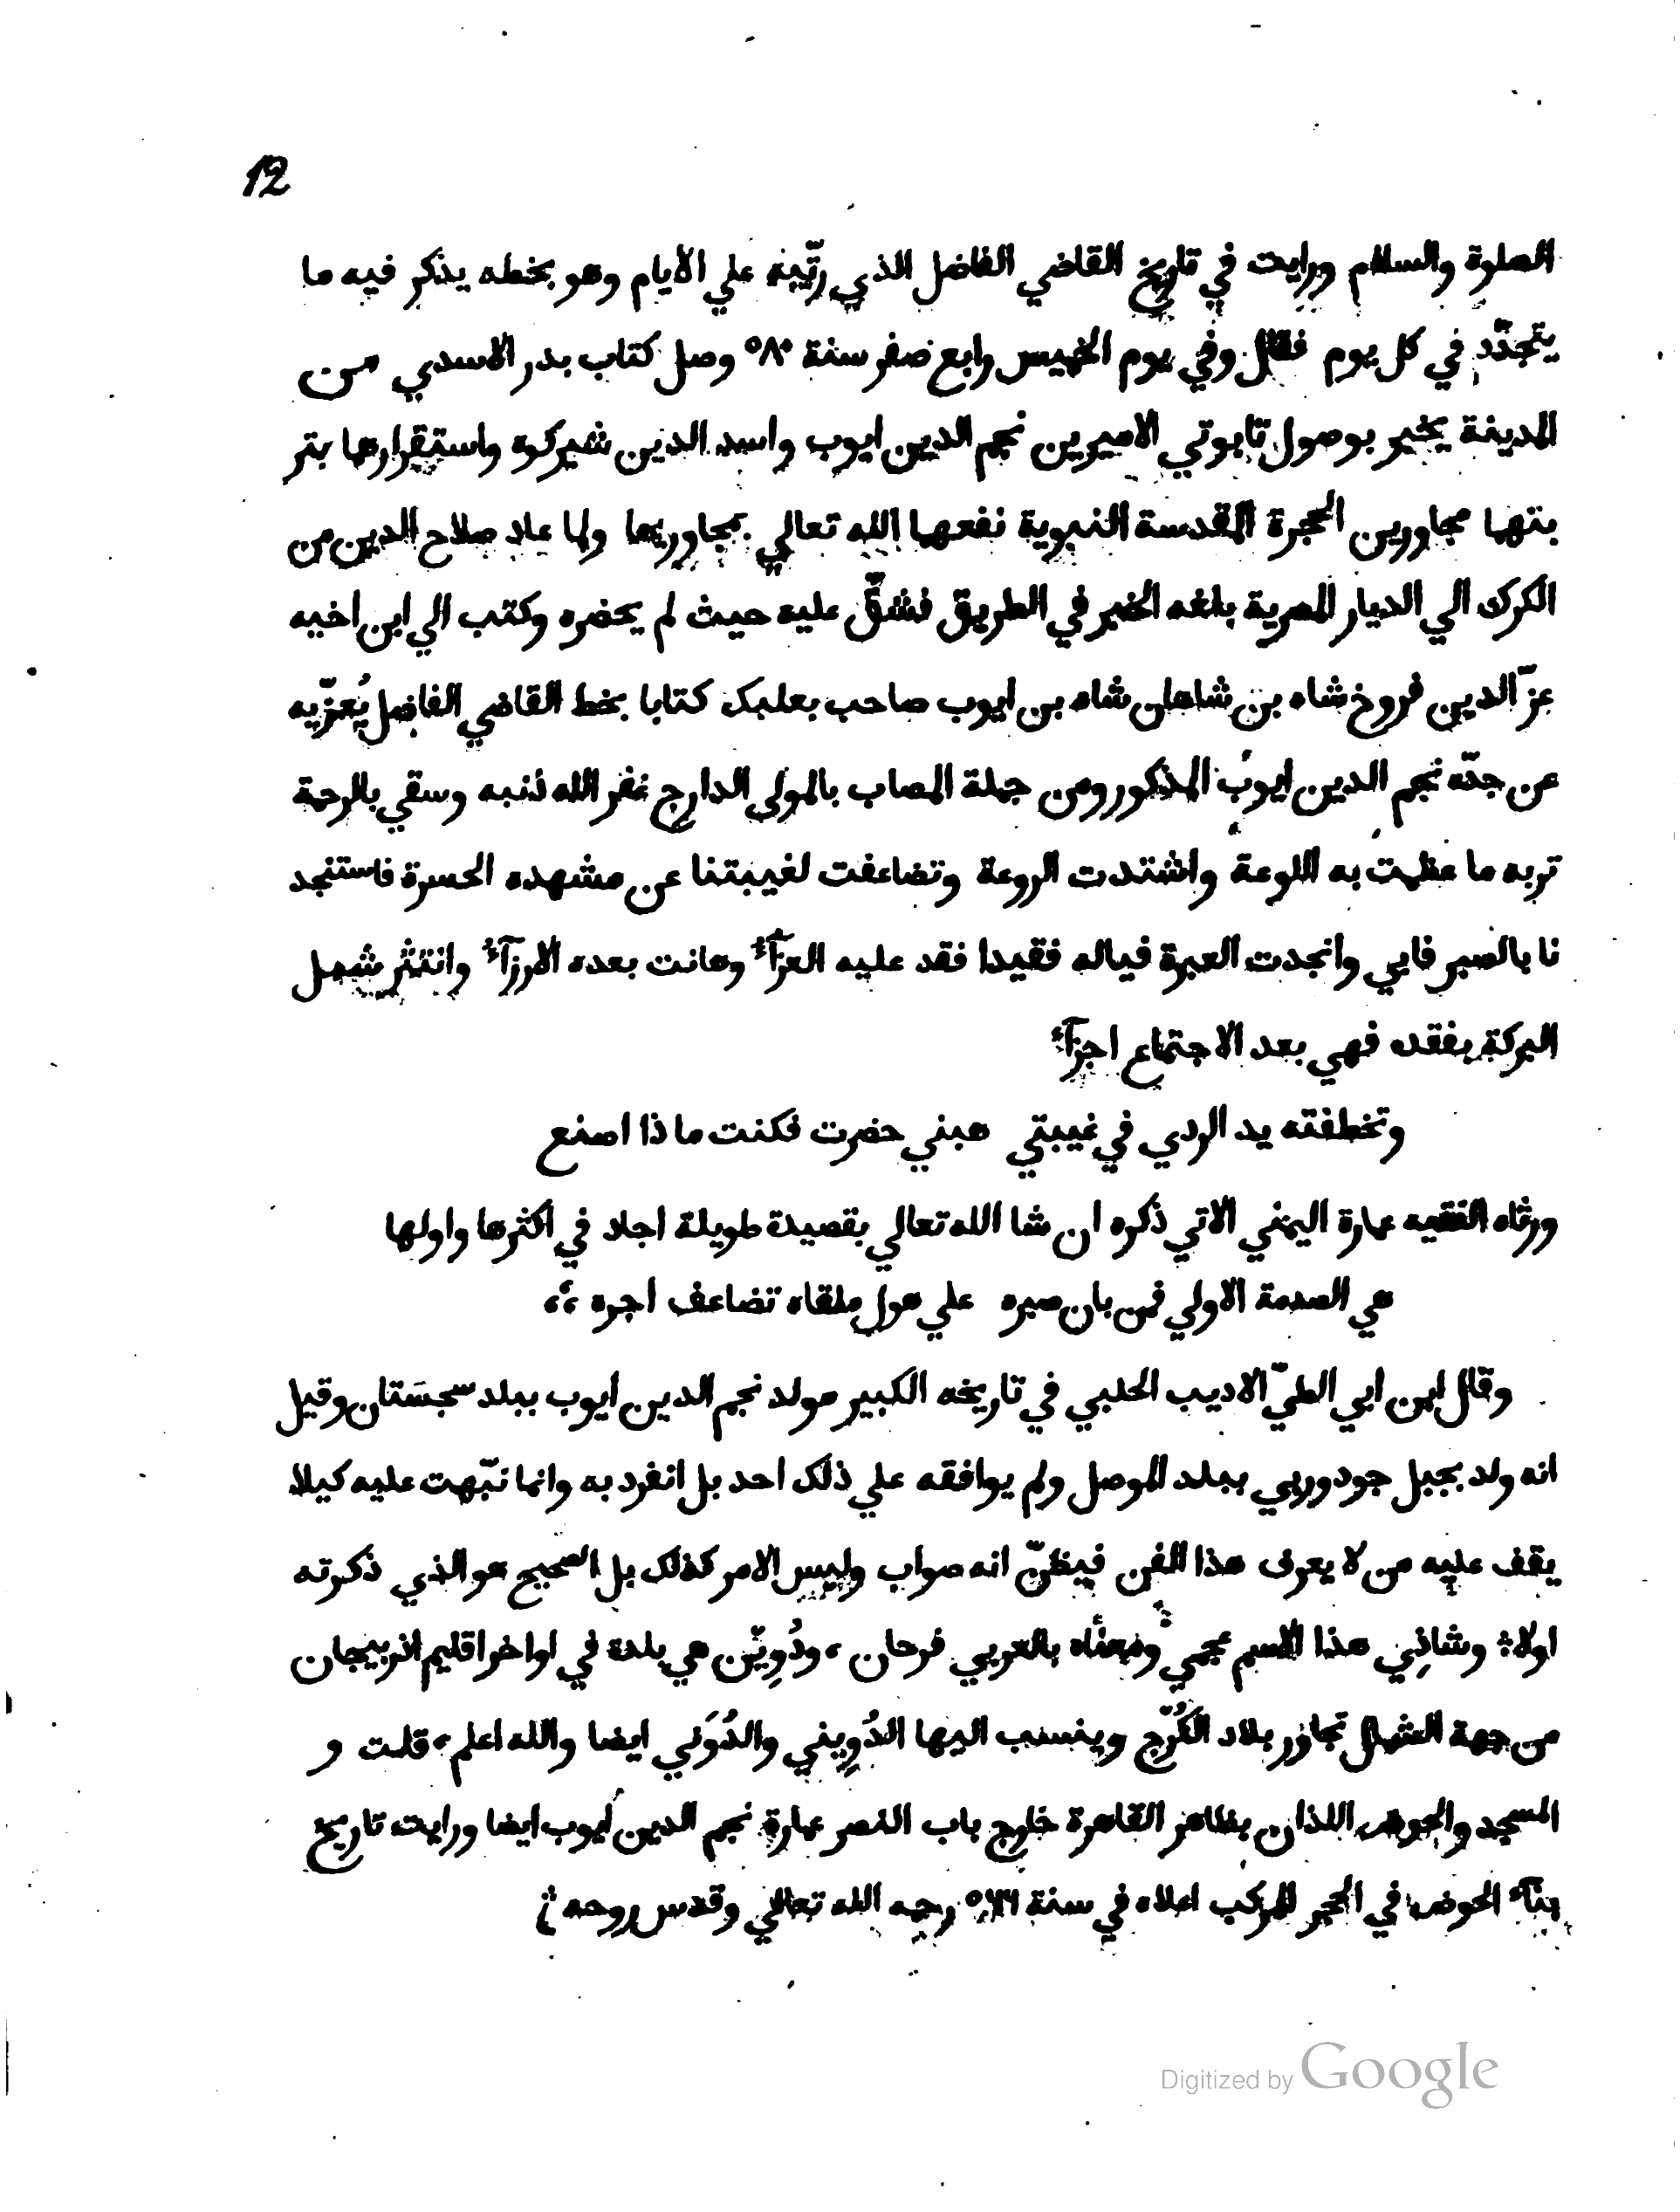 12
الصلوة والسلام ورايت في تاريخ القاضي الفاضل الذي رتّبه علي الايام وهو بخطه يذكر فيه ما
يتجدّد في كل يوم فقال وفي يوم الخميس رابع صفر سنة ٥٨٠ وصل كتاب بدر الاسدي من
المدينة يخبر بوصول تابوتي الاميرين نجم الدين ايوب واسد الدين شيركوه واستقرارهما بتر
بتهما مجاورين الحجرة المقدسة النبوية نفعهما الله تعالي بمجاوريها ولما عاد صلاح الدين من
الكرك الي الديار المصرية بلغه الخبر في الطريق فشقّ عليه حيث لم يحضره وكتب الي ابن اخيه
عزّ الدين فروخ شاه بن شاهان شاه بن ايوب صاحب بعلبك كتابا بخط القاضي الفاضل يُعزّيه
عن جدّه نجم الدين ايوب المذكور ومن جملة المصاب بالمولي الدارج غفر الله ذنبه وسقي بالرحمة
تربه ما عظمت به اللوعة واشتدت الروعة وتضاعفت لغيبتنا عن مشهده الحسرة فاستنجد
نا بالصبر فابي وانجدت العبرة فياله فقيدا فقد عليه العزآء وهانت بعده الارزآء وانتثر شمل
البركة بفقده فهي بعد الاجتماع اجزآء
وتخطفته يد الردي في غيبتي هبني حضرت فكنت ما ذا اصنع
ورثاه الفقيه عمارة اليمني الاتي ذكره ان شا الله تعالي بقصيدة طويلة اجاد في اكثرها واولها
هي الصدمة الاولي فمن بان صبره علي هول ملقاه تضاعف اجره ،،
وقال ابن ابي الطيّ الاديب الحلبي في تاريخه الكبير مولد نجم الدين ايوب ببلد سجسَتان وقيل
انه ولد بجبل جودوربي ببلد الموصل ولم يوافقه علي ذلك احد بل انفرد به وانما نبّهت عليه كيلا
يقف عليه من لا يعرف هذا الفن فيظنّ انه صواب وليس الامر كذلك بل الصحيح هو الذي ذكرته
اولا وشاذِي هذا الاسم عجمي ومعناه بالعربي فرحان ، ودُوِيّن هي بلدة في اواخر اقليم اذربيجان
من جهة الشمال تجاور بلاد الكُرّج وينسب اليها الدُوِيني والدُوَني ايضا والله اعلم ، قلت و
المسجد والحوض اللذان بظاهر القاهرة خارج باب النصر عمارة نجم الدين ايوب ايضا ورايت تاريخ
بنآء الحوض في الحجر المركب اعلاه في سنة ٥٦٦ رحمه الله تعالي وقدس روحه
Digitized by Google